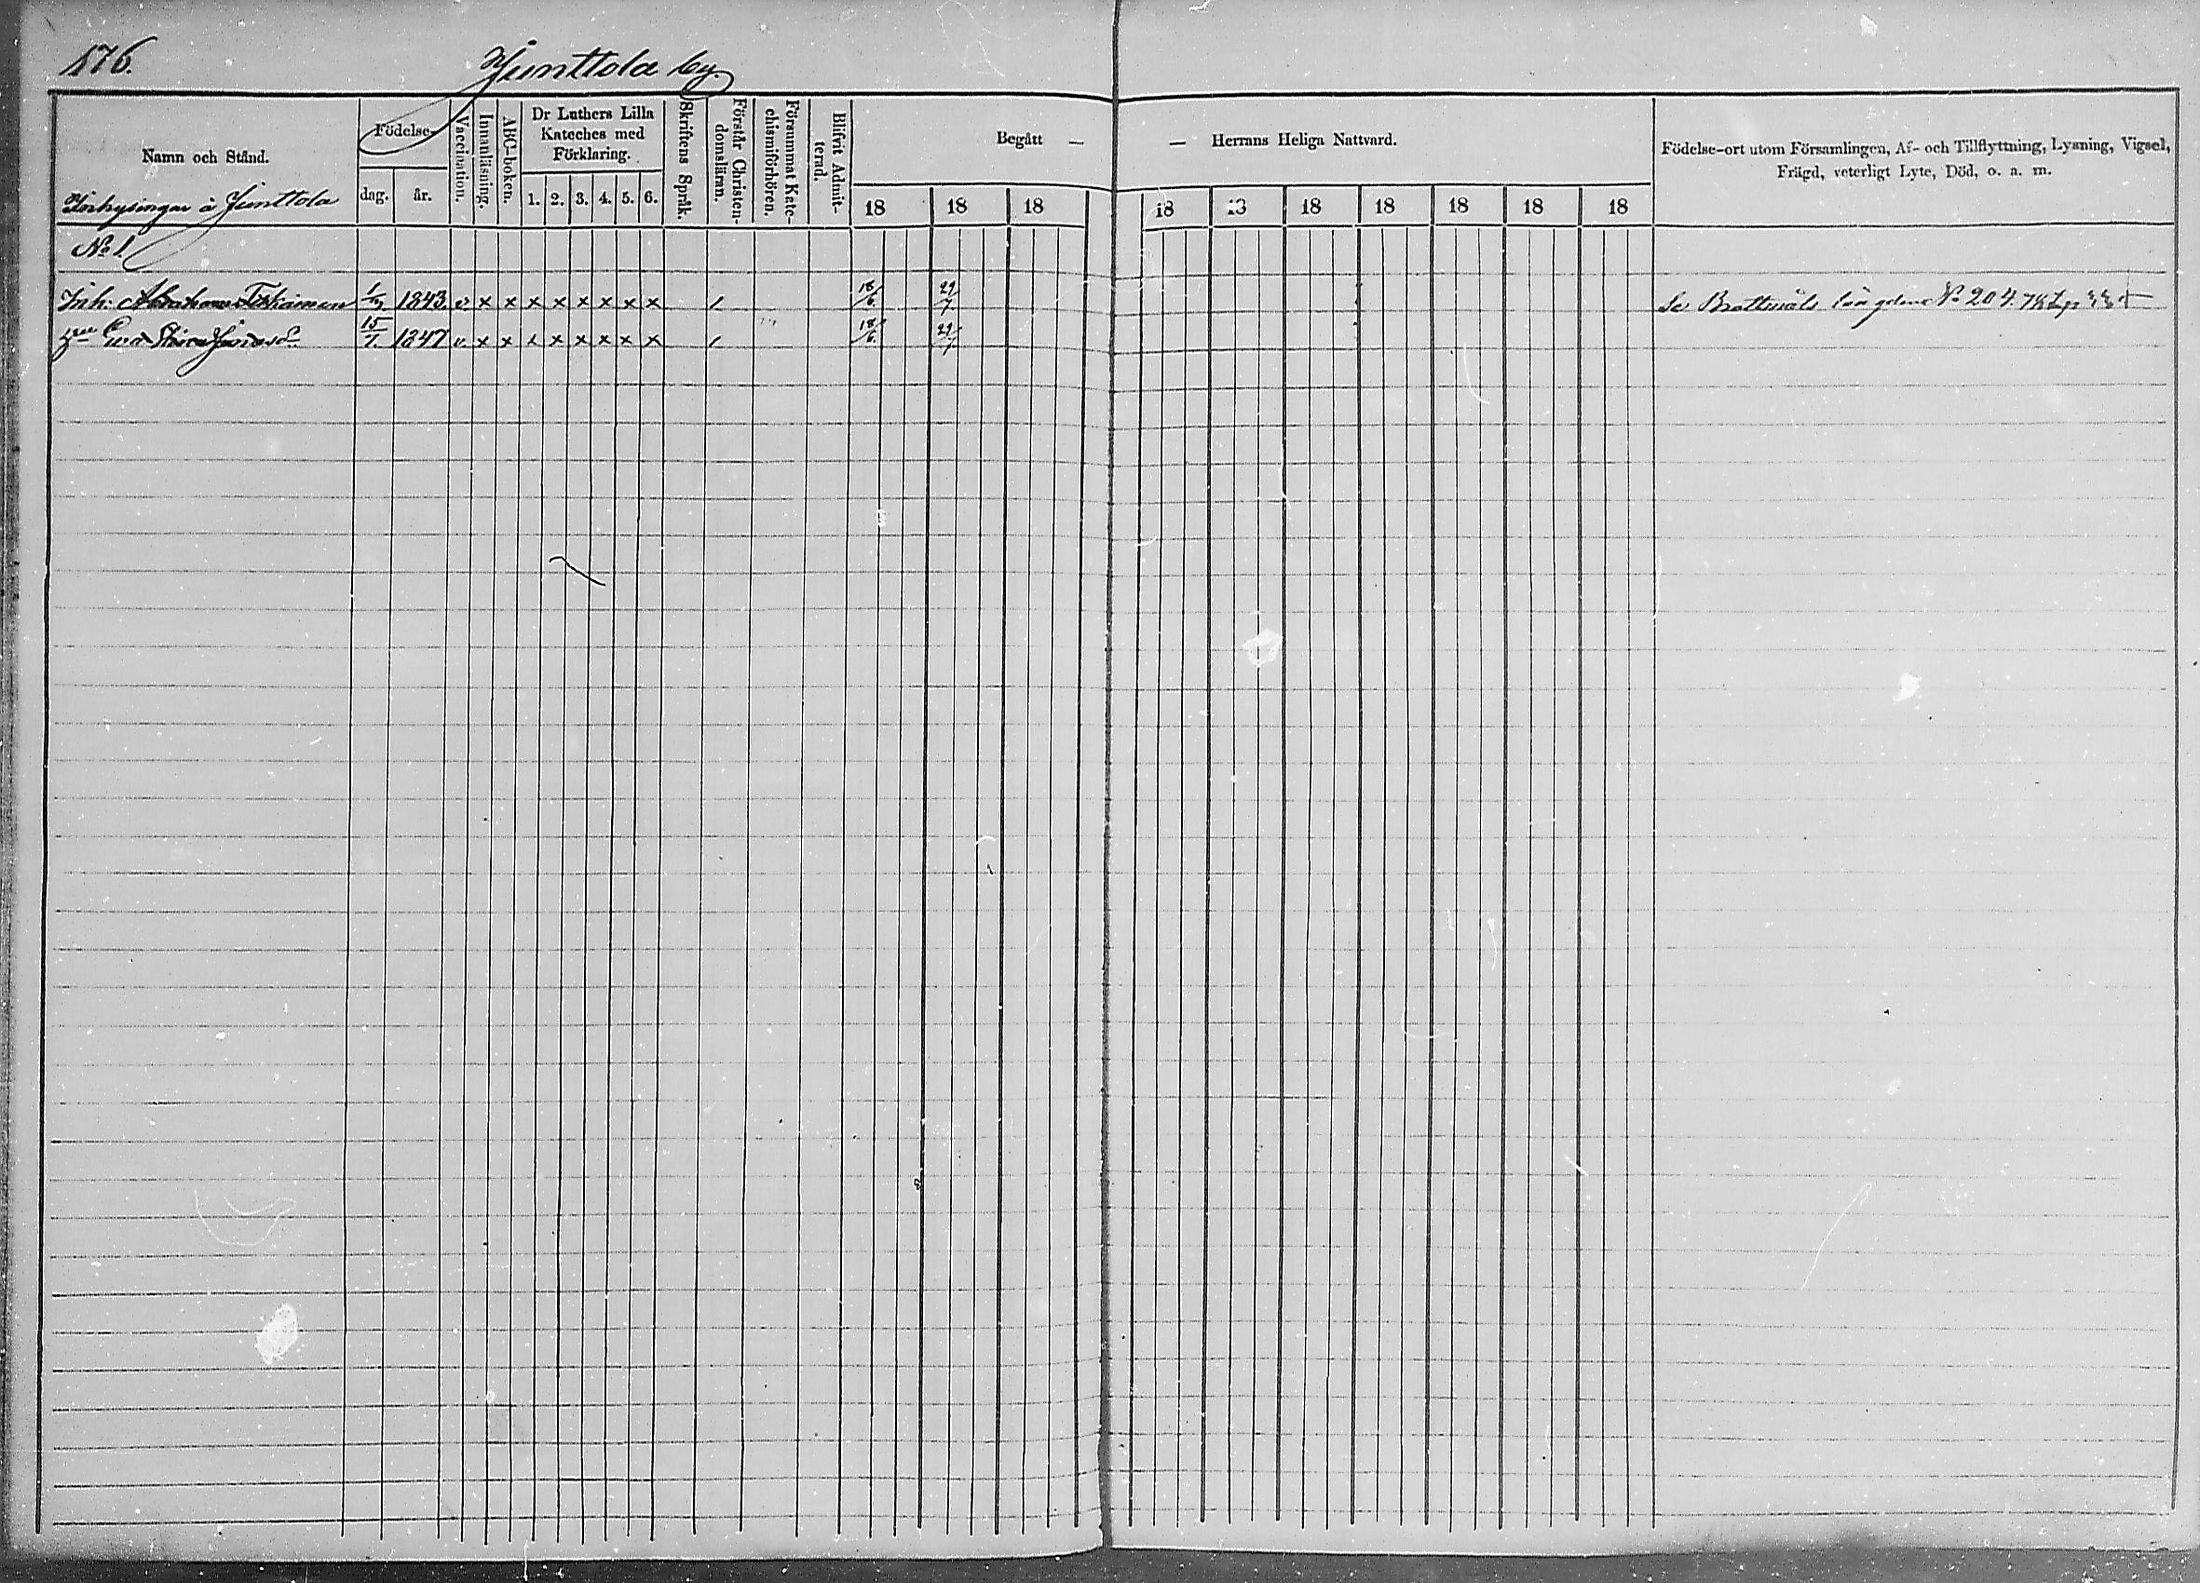 176.
Junttola by.
Namn och Stånd.
Födelse-
dag.
år.
Vaccination.
Innanläsning.
ABC-boken.
Dr Luthers Lilla
Kateches med
Förklaring.
1. 2. 3. 4. 5. 6.
Skriftens Språk.
Förstår Christen-
domsläran.
Försummat Kate-
chismiförhören.
Blifvit Admit-
terad.
Begått —
— Herrans Heliga Nattvard.
18 18 18 18 18 18 18 18 18 18
Födelse-ort utom Församlingen, Af- och Tillflyttning, Lysning, Vigsel,
Frägd, veterligt Lyte, Död, o. a. m.
Inhysingar å Junttola
No 1
Inh: Abraham 1843. v x x x x x x x x / 18/6 29/7 Se Brottmåls längden No 204.
Eva Stina 15/1. 1847 v. x x x x x x x x / 18/6 29/7